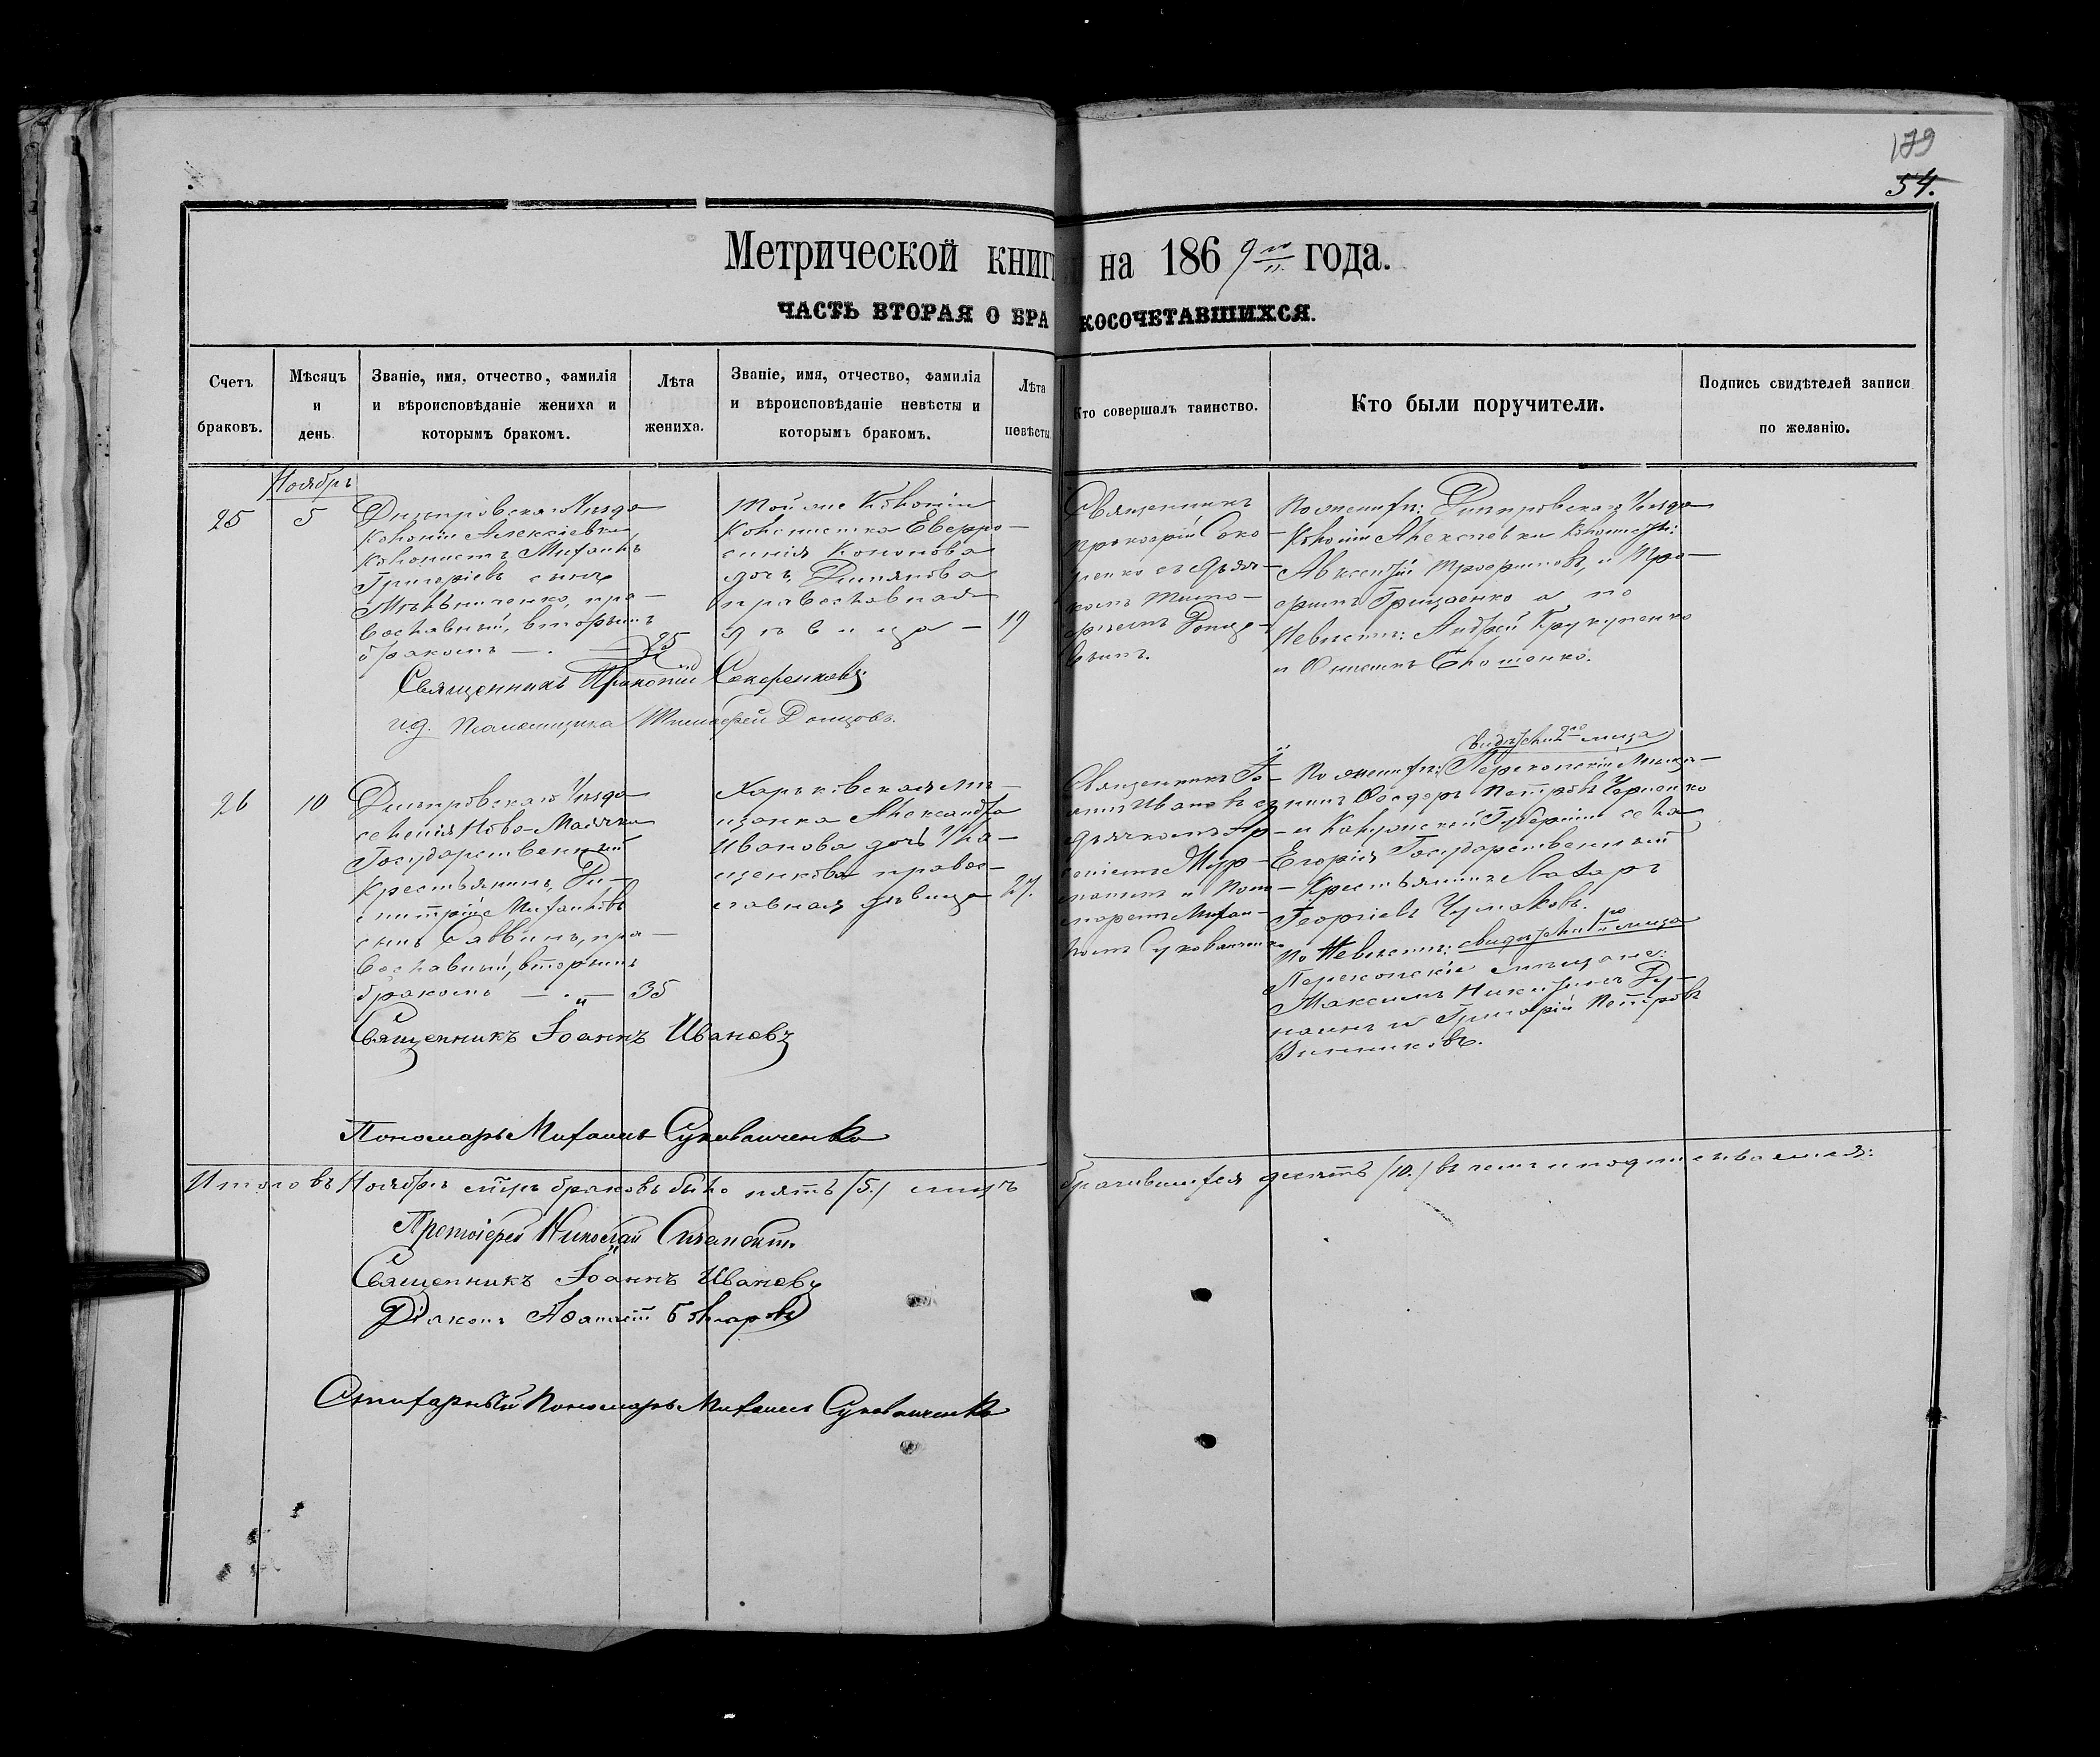 179
54.
Метрической книги на 1869 го года.
ЧАСТЬ ВТОРАЯ О БРАКОСОЧЕТАВШИХСЯ.
Счетъ браковъ.
Мѣсяцъ и день.
Званіе, имя, отчество, фамилія и вѣроисповѣданіе жениха и которымъ бракомъ.
Лѣта жениха.
Званіе, имя, отчество, фамилія и вѣроисповѣданіе невѣсты и которымъ бракомъ.
Лѣта невѣсты
Кто совершалъ таинство.
Кто были поручители.
Подпись свидѣтелей записи по желанію.
Ноябрь
25
5
Днѣпровскаго Уѣзда
Колоніи Алексѣевки
колонистъ Михаилъ
Григоріевъ сынъ
пра-
вославный, вторымъ
бракомъ
25
Той же Колоніи
Колонистка Евфро-
синія Кононова
дочь
православная
дѣвица
19
Священникъ
Прокопій Соко-
ренко съ дьяч-
комъ Тимо-
феемъ Донцо-
вымъ.
По женихѣ: Днѣпровскаго Уѣзда
Колоніи Алексѣевки Колонисты:
Авксентій и Тро-
фимъ Грицаенко а по
Невѣстѣ: Андрей
и
Священникъ Прокопій
и.д. Псаломщика Тимофей Донцовъ.
26
10
Днѣпровскаго Уѣзда
селенія Ново-Маячки
Государственный
Крестьянинъ, Ди-
митрій Михайловъ
сынъ Саввинъ, пра-
вославный, вторымъ
бракомъ
35
Харьковская мѣ-
щанка Александра
Иванова дочь
правос-
славная дѣвица
27.
Священникъ Іо-
аннъ Ивановъ съ
дьячкомъ
и Поно-
маремъ Михаи-
ломъ Суковаиченко
свидѣтели лица
По женихѣ: Перекопскій Мѣща-
нинъ Феодоръ Петровъ Черненко
и Калужской Губерніи села
Егорія Государственный
Крестьянинъ Лазарь
Георгіевъ Чумаковъ.
По Невѣстѣ: свидѣтели лица
Перекопскіе мѣщане:
Максимъ Никитинъ
и Григорій Петровъ
Винниковъ.
Священникъ Іоаннъ Ивановъ
Пономарь Михаилъ Суковаиченко
Итого въ Ноябрѣ м-цѣ браковъ было пять /5./ лицъ брачившихся десять /10./ въ чемъ и подписываемся:
Протоіерей Николай
Священникъ Іоаннъ Ивановъ
Діаконъ Афанасій
Стихарный Пономарь Михаилъ Суковаиченко